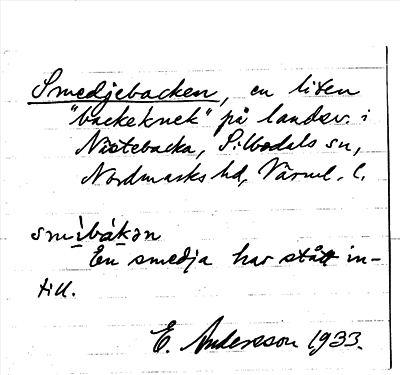 Smedjebacken, en liten
"backeknek" på landsv. i
Nästebacka, Silbodals sn,
Nordmarks hd, Värml. l.
smìbákən
En smedja har stått in-
till.
E. Andersson 1933.